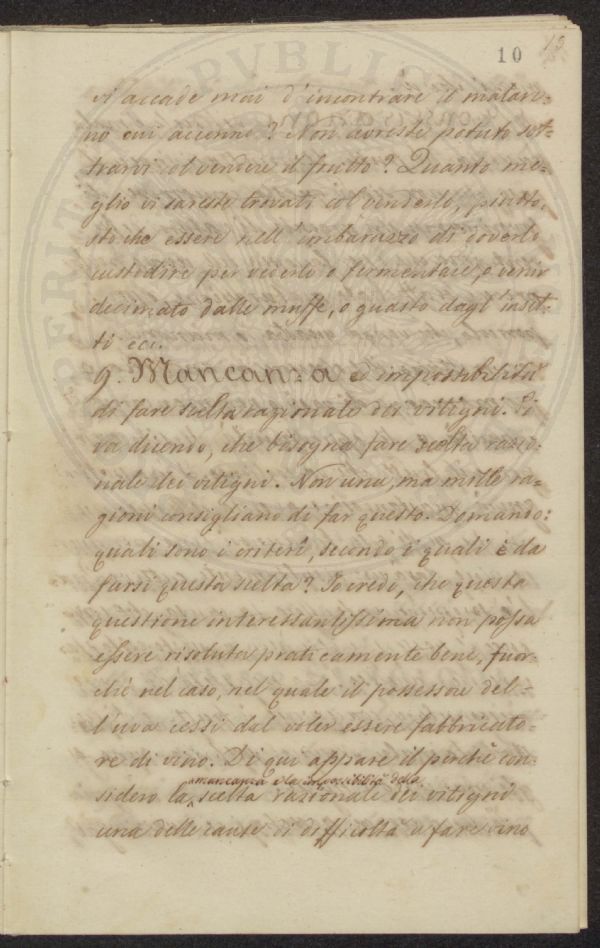 10 19
vi accade mai d'incontrare il malan-
no cui accenno? Non avreste potuto sot-
trarvi col vendere il frutto? Quanto me-
glio vi sareste trovati col venderlo, piutto-
sto che essere nell'imbarazzo di doverlo
custodire per vederlo o fermentare, o venir
decimato dalle muffe, o guasto dagl'inset-
ti ecc.
9. Mancanza ed impossibilità
di fare scelta razionale dei vitigni. Si
va dicendo, che bisogna fare scelta razio-
nale dei vitigni. Non una, ma mille ra-
gioni consigliano di far questo. Domando:
quali sono i criterî, secondo i quali è da
farsi questa scelta? Io credo, che questa
questione interessantissima non possa
essere risoluta praticamente bene, fuor-
chè nel caso, nel quale il possessore del-
l'uva cessi dal voler essere fabbricato-
re di vino. Di qui appare il perchè con-
mancanza e la impossibilità della
sidero la scelta razionale dei vitigni
una delle cause di difficoltà a fare vino